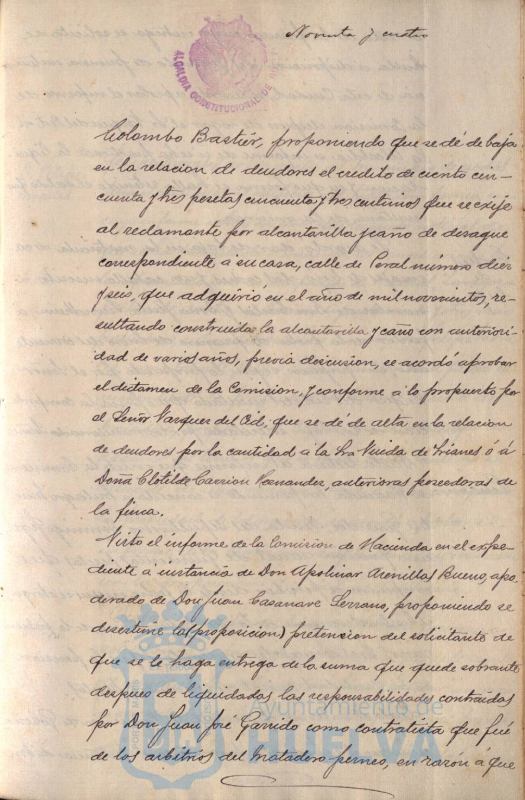 Noventa y cuatro
ALCALDIA CONSTITUCIONAL DE
Colombo Bastier, proponiendo que se dé de baja
en la relacion de deudores el credito de ciento cin-
cuenta y tres pesetas cincuenta y tres centimos que se exije
al reclamante por alcantarilla y caño de desague
correspondiente á su casa, calle de Peral número diez
y seis, que adquirió en el año de mil novecientos, re-
sultando construidas la alcantarilla y caño con anteriori-
dad de varios años, previa discusion, se acordó aprobar
el dictamen de la Comision, y conforme á lo propuesto por
el Señor Vazquez del Cid, que se dé de alta en la relacion
de deudores por la cantidad á la Sra Viuda de Trianes ó á
Doña Clotilde Carrion Hernandez, anteriores poseedoras de
la finca.
Visto el informe de la Comision de Hacienda en el expe-
diente á instancia de Don Apolinar Arenillas Bueno, apo-
derado de Don Juan Casanave Serrano, proponiendo se
desestime la (proposicion) pretension del solicitante de
que se le haga entrega de la suma que quede sobrante
despues de liquidadas las responsabilidades contraidas
por Don Juan José Garrido como contratista que fué
de los arbitrios del Matadero perneo, en razón á que
Ayuntamiento de
HUELVA